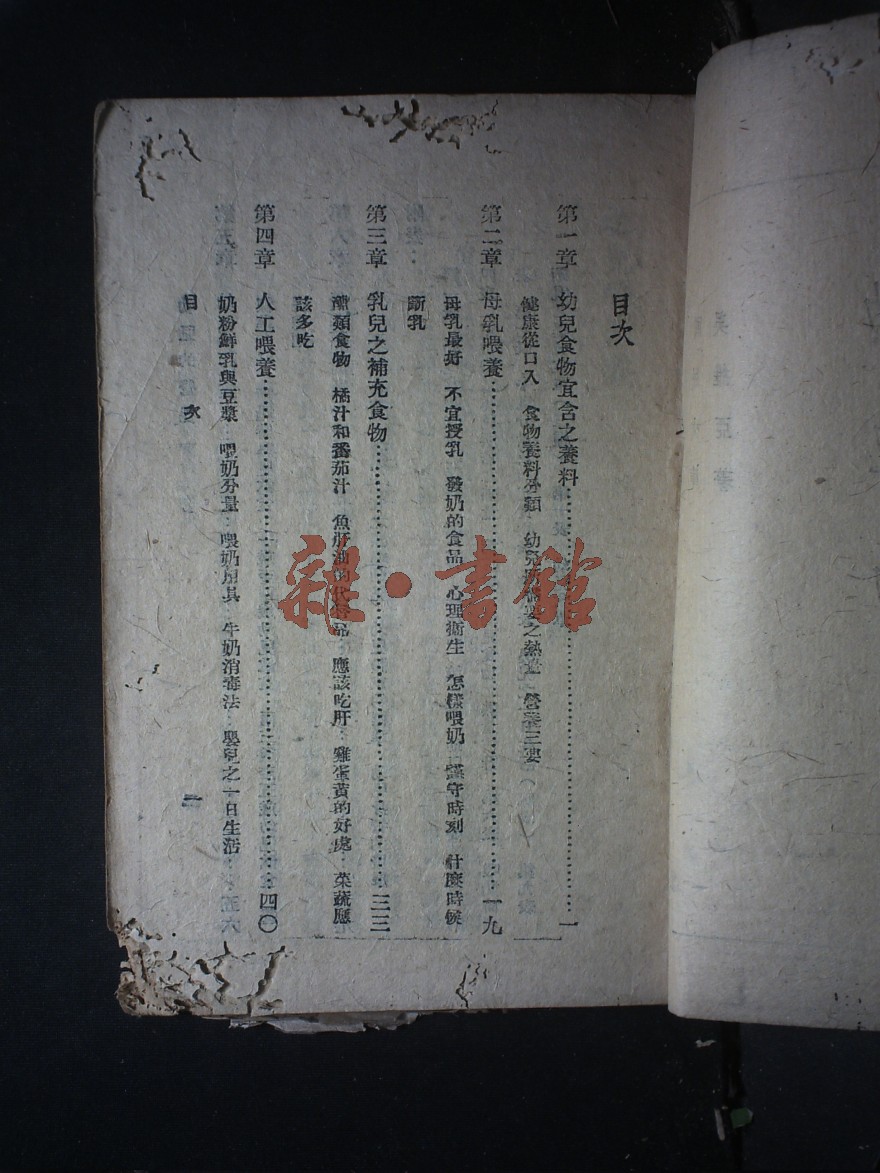 目次
第一章　幼兒食物宜含之養料……一
健康從口入　食物養料分類　幼兒所需要之熱量　營養三要
第二章　母乳喂養……一九
母乳最好　不宜授乳　發奶的食品　心理衛生　怎樣喂奶　謹守時刻　什麼時候
斷乳
第三章　乳兒之補充食物……三三
醣類食物　橘汁和蕃茄汁　魚肝油的代替品　應該吃肝　雞蛋黃的好處　菜蔬應
該多吃
第四章　人工喂養……四〇
奶粉鮮乳與豆漿　喂奶分量　喂奶用具　牛奶消毒法　嬰兒之一日生活
目　次　　一
雜·書館